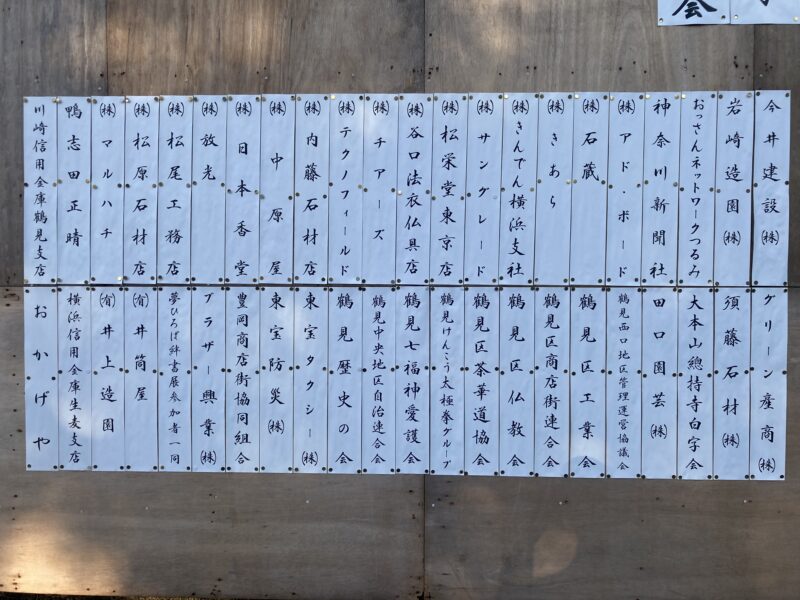 会
今井建設㈱
岩崎造園㈱
おっさんネットワークつるみ
神奈川新聞社
㈱アド・ボード
㈱石蔵
㈱きあら
㈱きんでん横浜支社
㈱サングレード
㈱松栄堂東京店
㈱谷口法衣仏具店
㈱チアーズ
㈱テクノフィールド
㈱内藤石材店
㈱中原屋
㈱日本香堂
㈱放光
㈱松尾工務店
㈱松原石材店
㈱マルハチ
鴨志田正晴
川崎信用金庫鶴見支店
グリーン産商㈱
須藤石材㈱
大本山總持寺白字会
田口園芸㈱
鶴見西口地区管理運営協議会
鶴見区工業会
鶴見区商店街連合会
鶴見区仏教会
鶴見区茶華道協会
鶴見けんこう太極拳グループ
鶴見七福神愛護会
鶴見中央地区自治連合会
鶴見歴史の会
東宝タクシー㈱
東宝防災㈱
豊岡商店街協同組合
ブラザー興業㈱
夢ひろば絆書展参加者一同
㈲井筒屋
㈲井上造園
横浜信用金庫生麦支店
おかげや